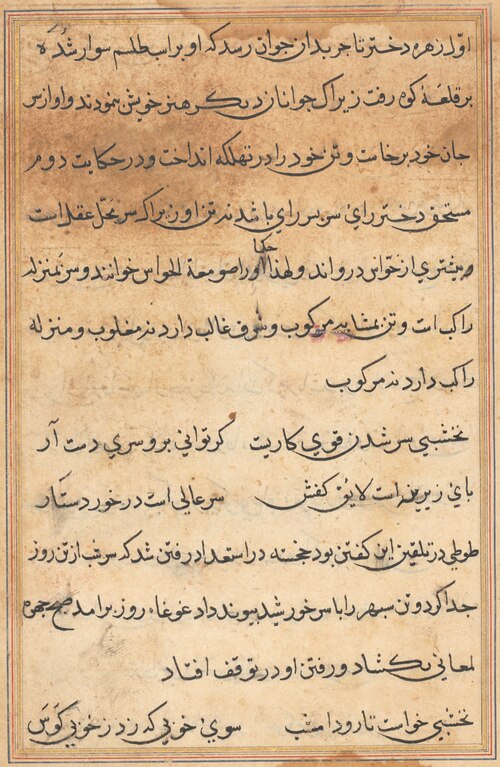 اول زهره دختر تاجر بدان جوان رسد که او بر اسب طلسم سوار شده
بر قلعهٔ کوه رفت زیرا که جوانان دیگر هنر خویش نمودند و او از سر
جان خود برخاست و تن خود را در تهلکه انداخت و در حکایت دوم
مستحق دختر رای سر پسر رای باشد نه تن او زیرا که سر محل عقل است
و بیشتری از حواس درو اند و لهذا حکما او را صومعة الحواس خوانند و سر بمنزله
راکب است و تن بمثابه مرکوب و شرف غالب دارد نه مغلوب و منزله
راکب دارد نه مرکوب
نخشبی سر شدن قوی کاریت گر توانی برو سری دست آر
پای زیرین است لایق کفش سر عالی است در خور دستار
طوطی در تلقین این گفتن بود خجسته در استعداد رفتن شد که سر شب از تن روز
جدا کرد و تن سپهر را با سر خورشید پیوند داد غوغاء روز برامد صبح چهره
لمعانی بکشاد و رفتن او در توقف افتاد
نخشبی خواست تا رود امشب سوی خوبی که زد ز خوبی کوس